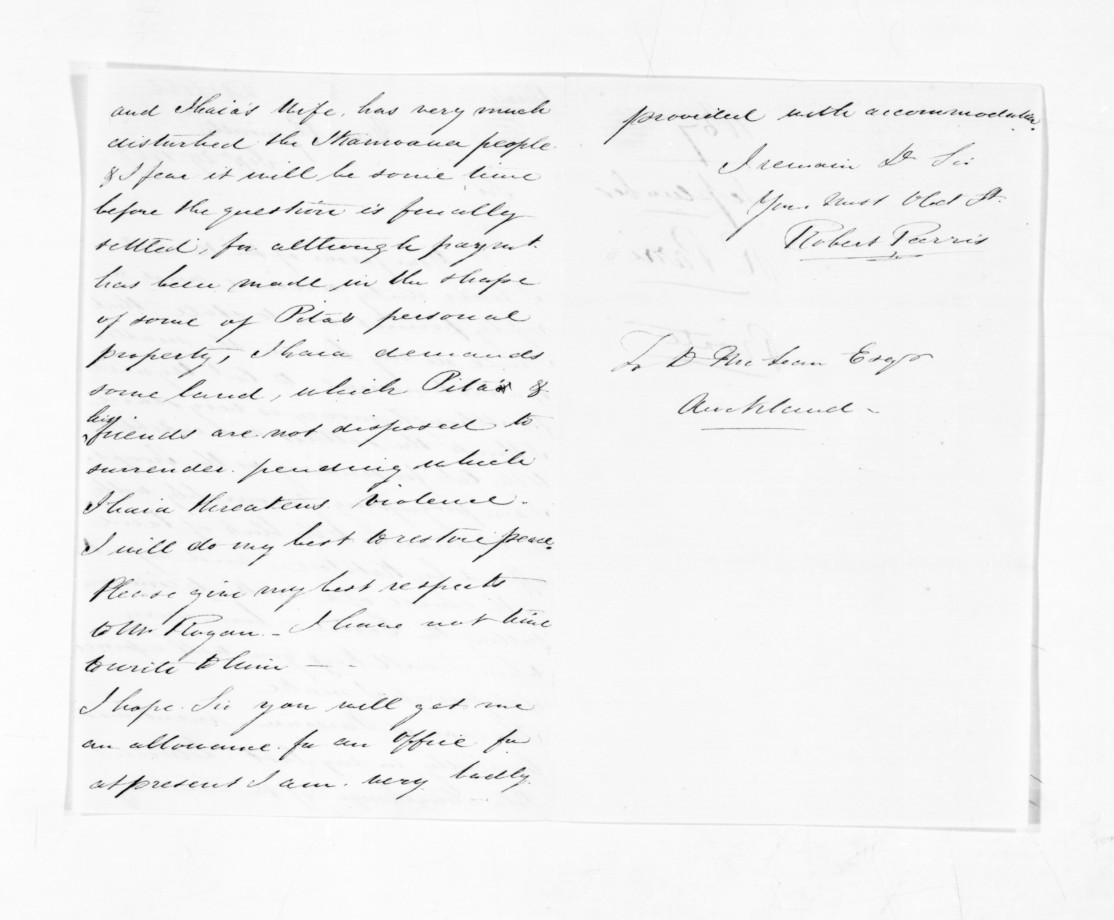 and Ihaia's Wife, has very much
disturbed the Ngamoana people
& I fear it will be some time
before the question is finally
settled, for although paymt.
has been made in the shape
of some of Pita's personal
property, Ihaia demands
some land, which Pita &
his friends are not disposed to
surrender. pending which
Ihaia threatens violence.
I will do my best to restore peace.
Please give my best respects
to Mr Rogan. – I have not time
to write to him – –
I hope. Sir you will get me
an allowance for an Office for
at present I am. very badly.
provided with accommodation.
I remain Dr Sir
Your Most Obdt St.
Robert Parris
To D McLean Esqr
Auckland –